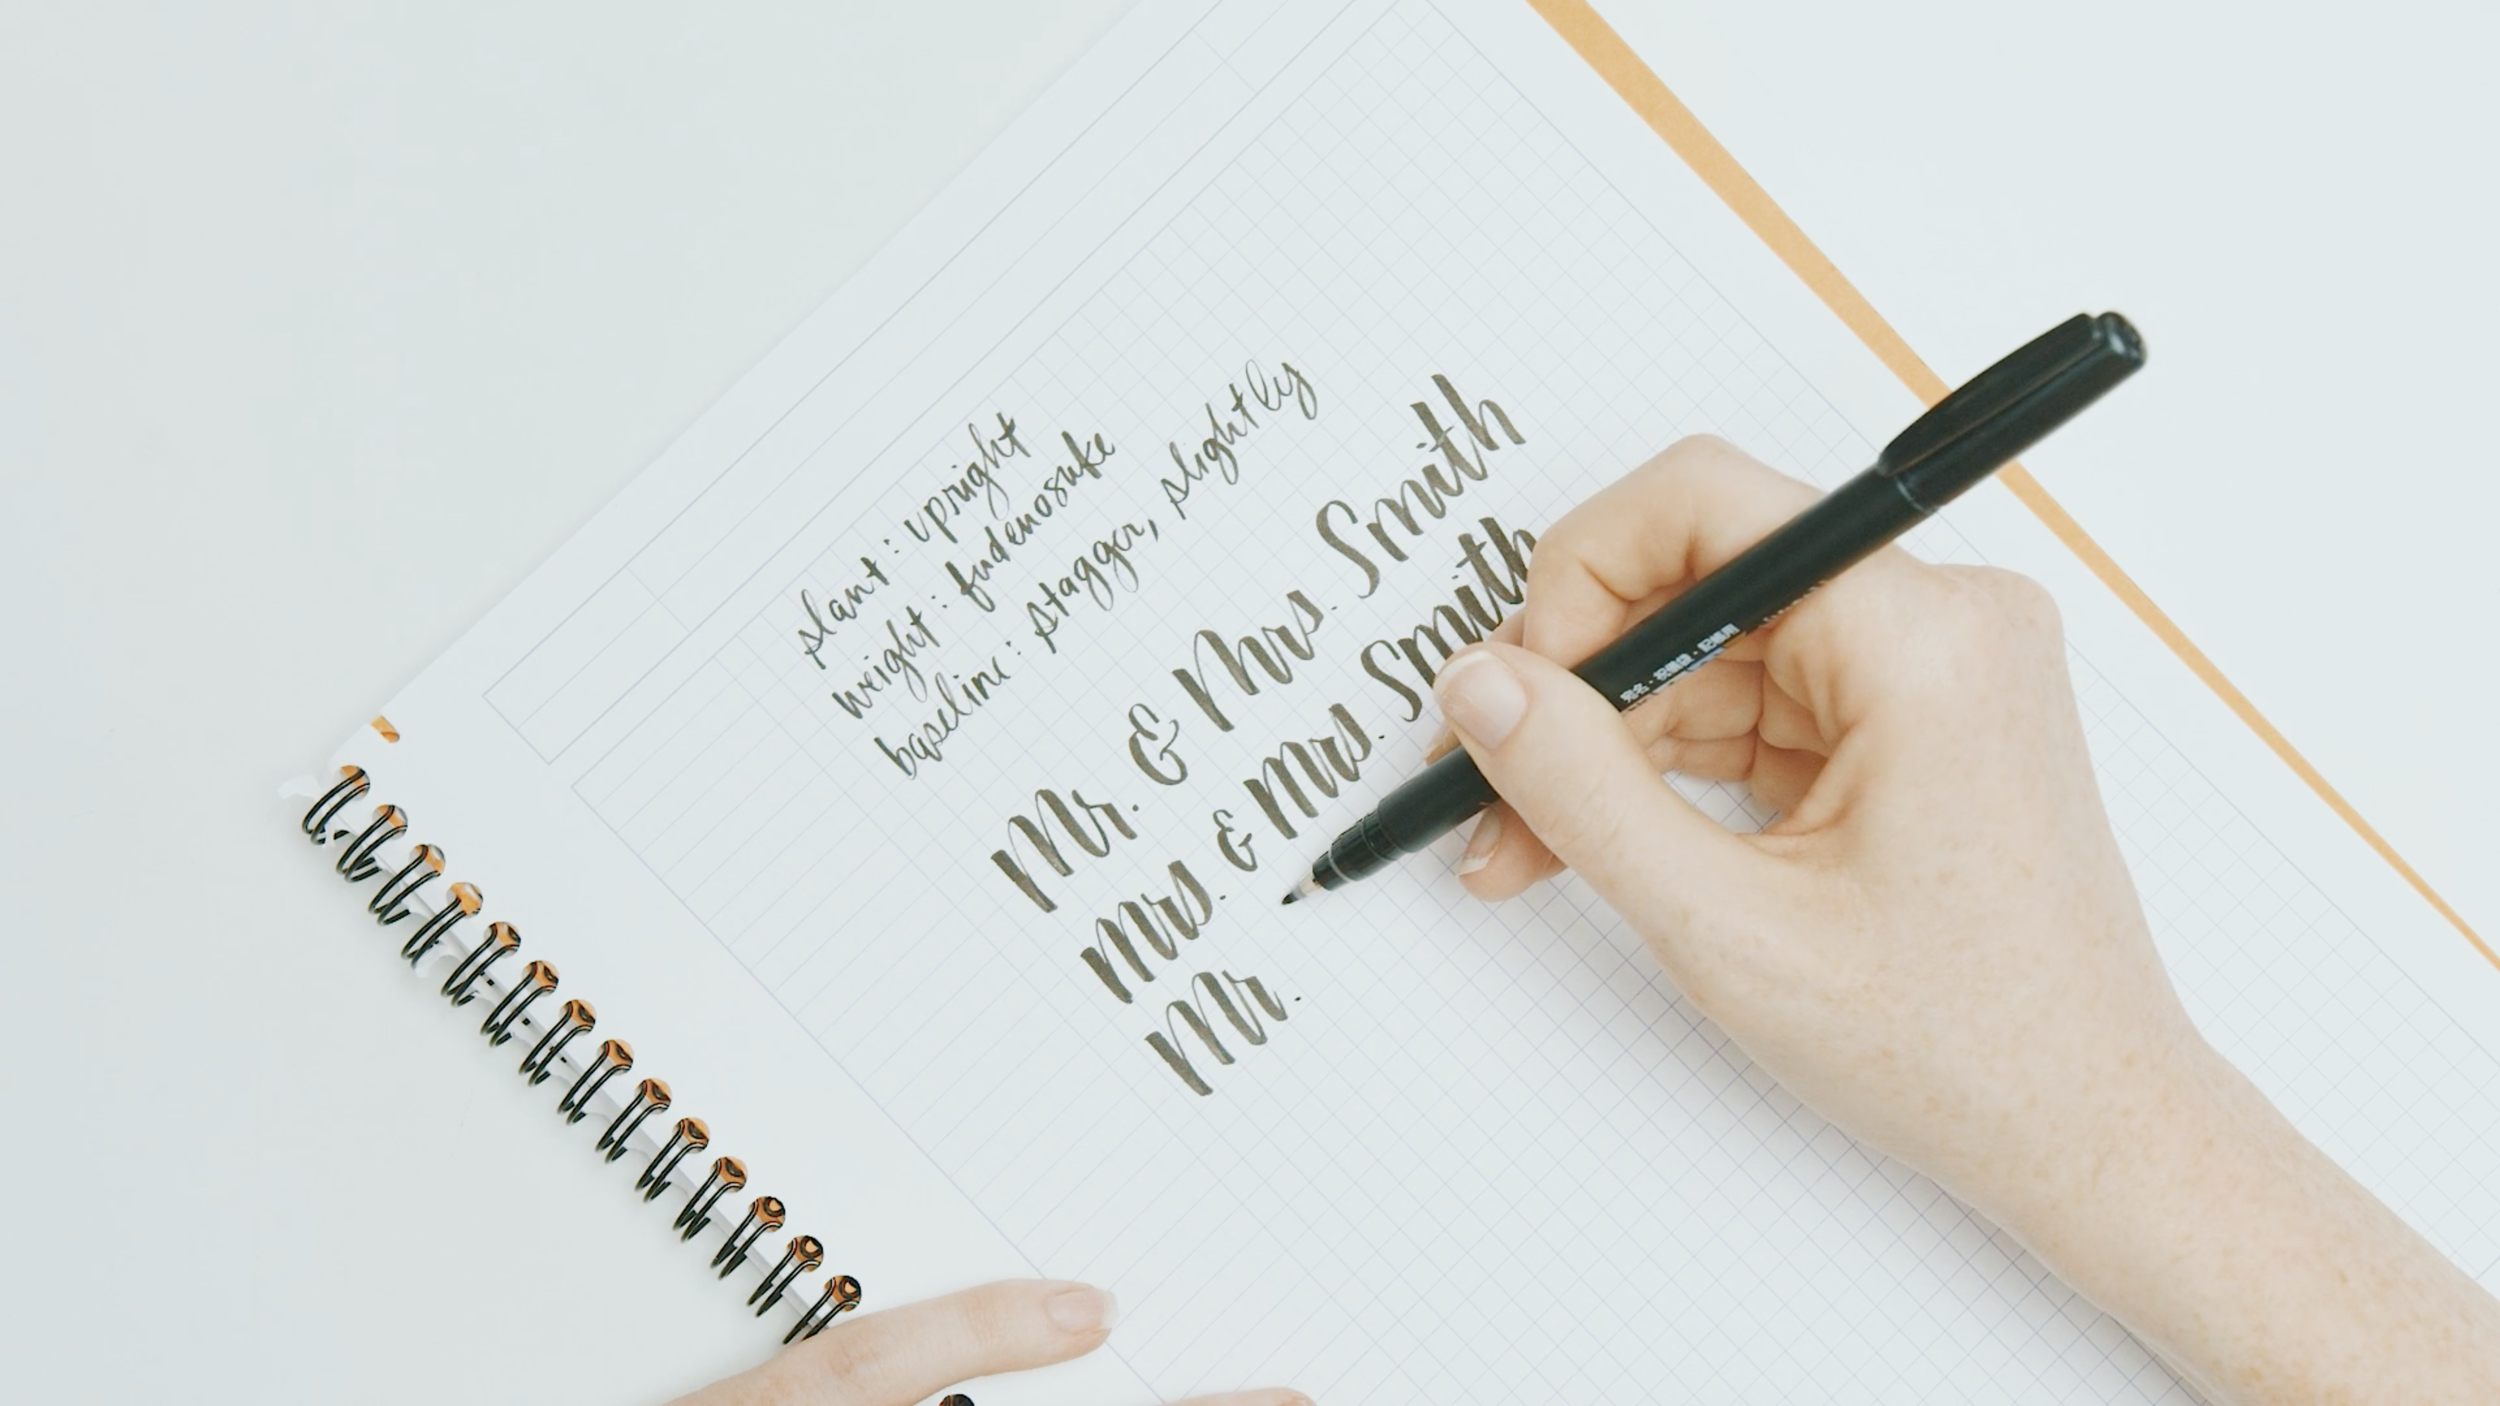 slant: upright
weight: fudenosuke
baseline: stagger, slightly
Mr. & Mrs. Smith
Mrs. & Mrs. Smith
Mr.